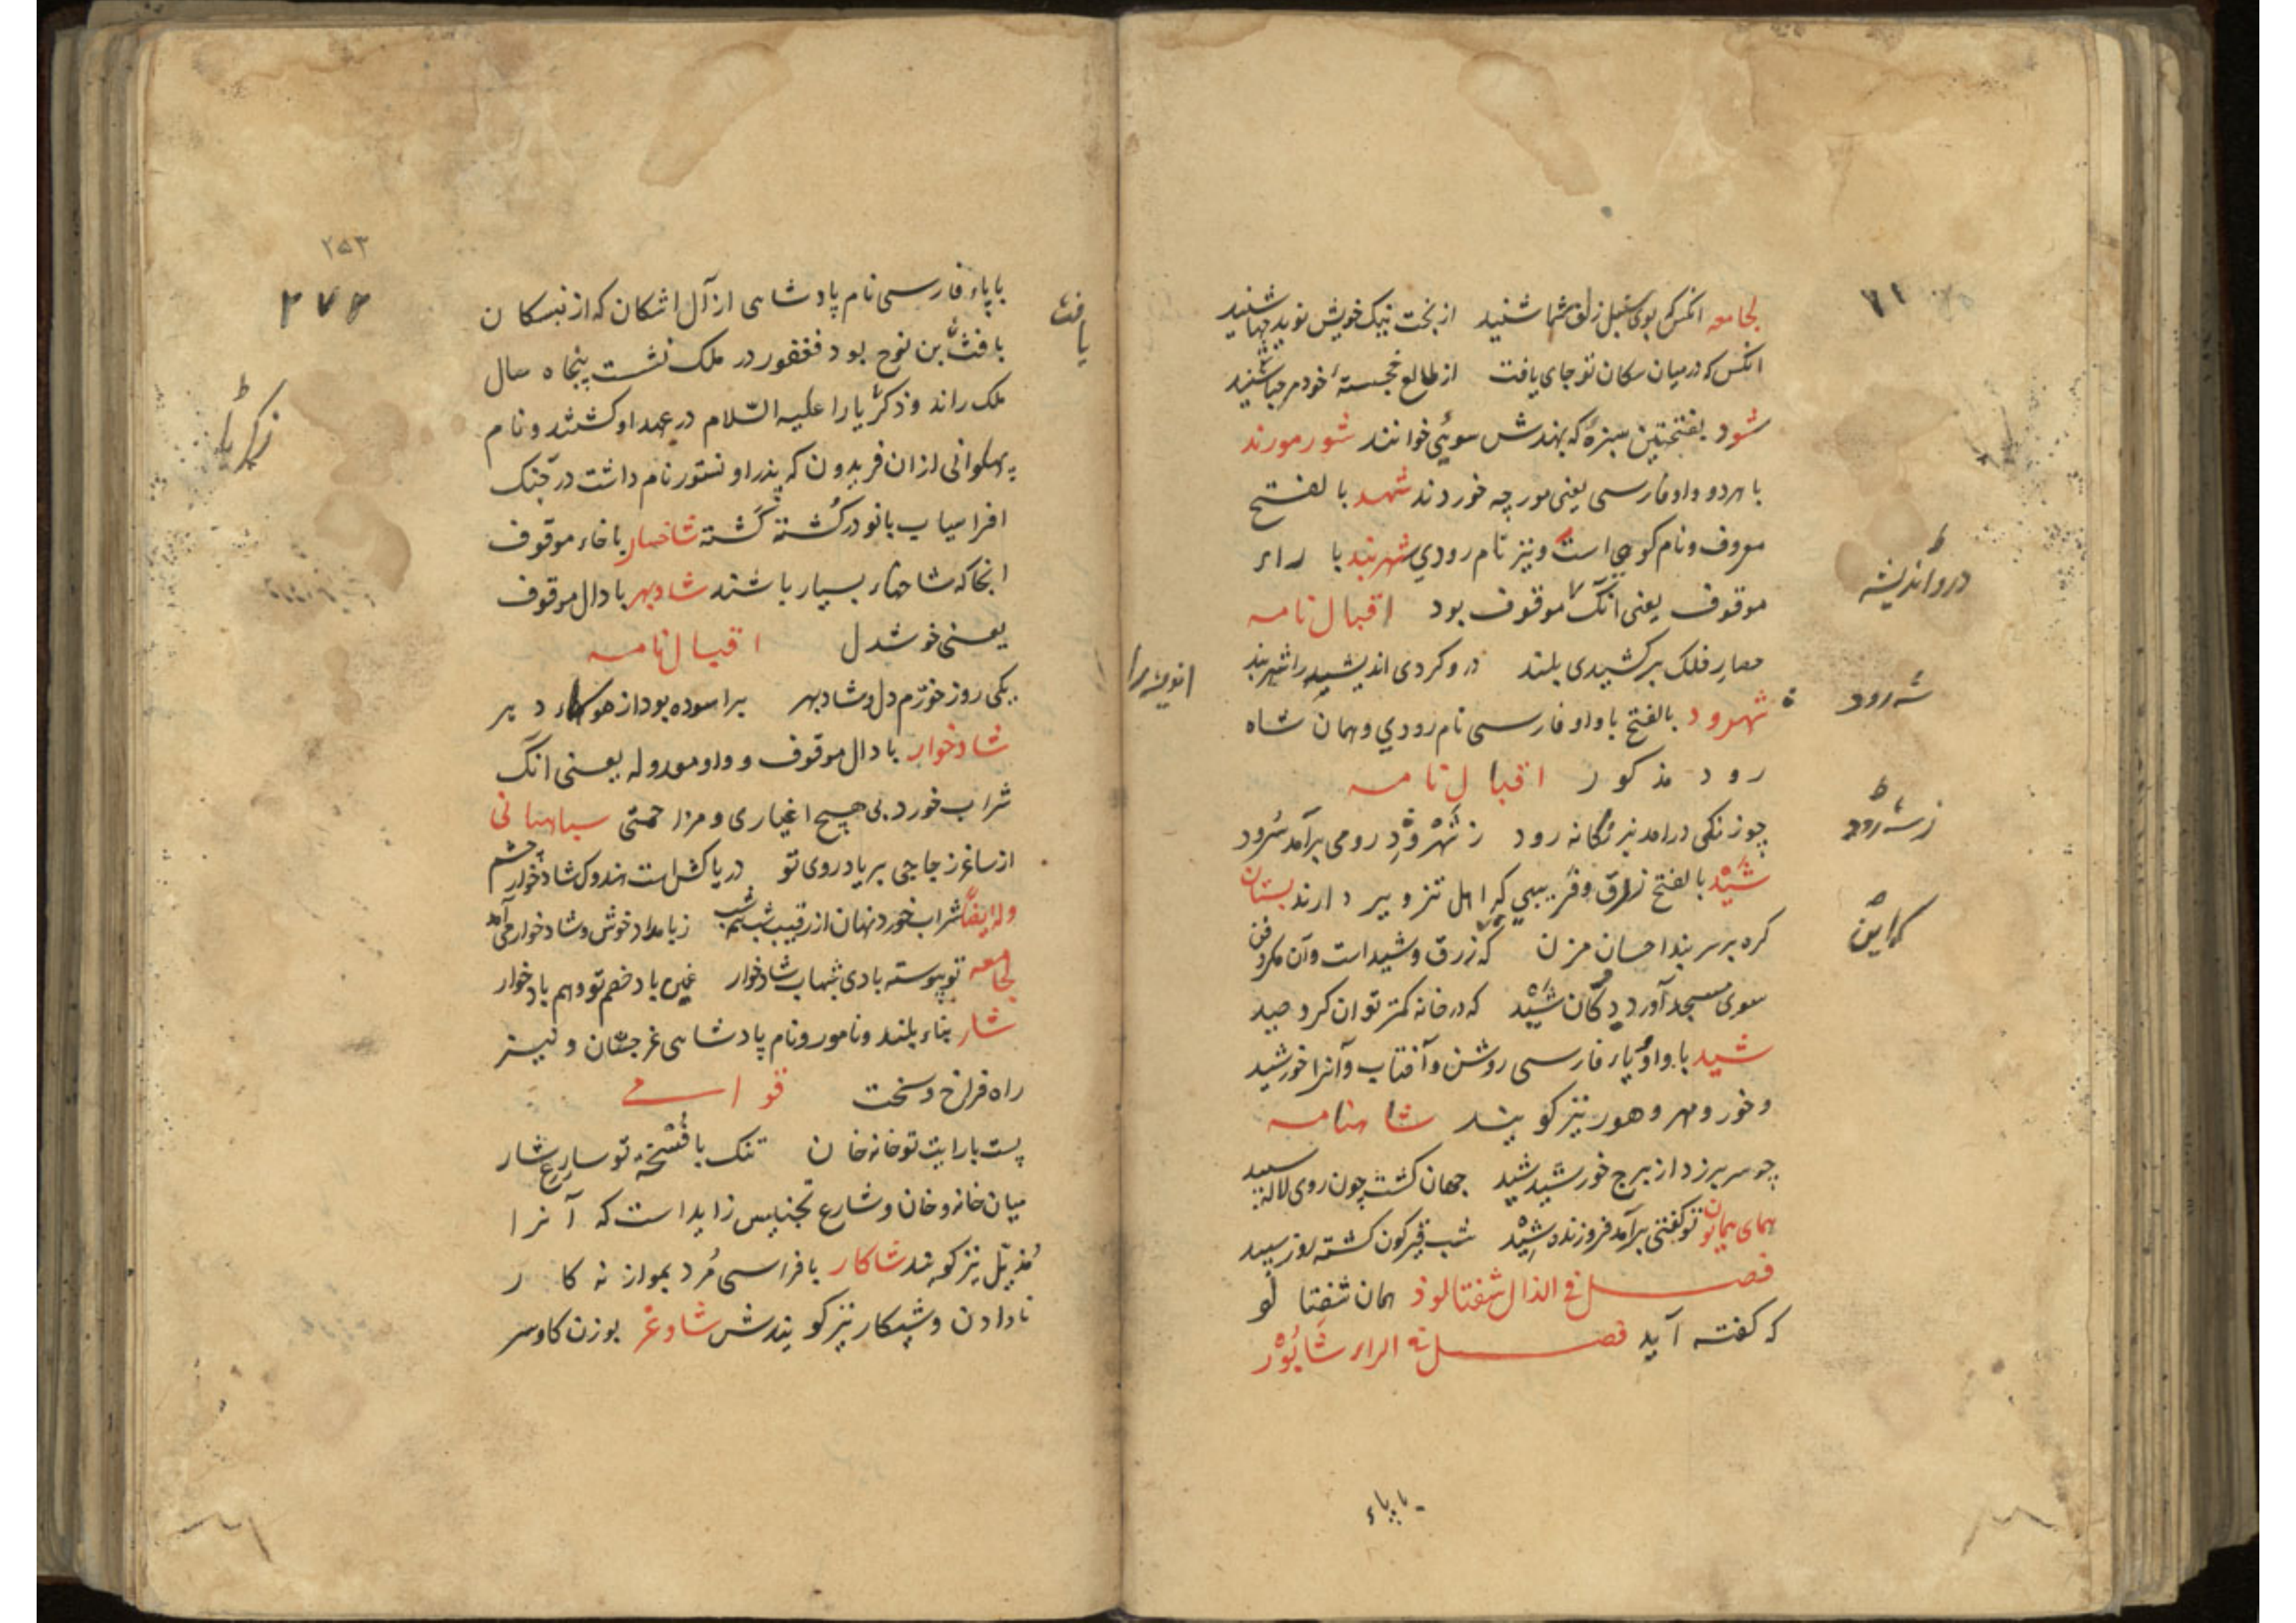 لجامعه انکس که بوی سنبل زلف شما شنید از بخت نیک خویش نوید بها شنید
انکس که در میان سکان تو جای یافت از طالع خجستهٔ خود مرحبا شنید
شود بفتحتین سبزهٔ که بهندش سوئی خوانند شور مورند
با هردو واو فارسی یعنی مورچه خوردند شهد بالفتح
معروف و نام کوهی است و نیز نام رودی شهربند با راء
موقوف یعنی آنک موقوف بود اقبال نامه
حصار فلک برکشیدی بلند درو کردی اندیشه را شهربند
شهرود بالفتح با واو فارسی نام رودی و همان شاه
رود مذکور اقبال نامه
چو زنکی درامد بزنکانه رود ز شهرود رومی برآمد سرود
شید بالفتح زرق و فریبی که اهل تزویر دارند بستان
کره بر سر بند احسان مزن که زرق و شیداست و آن مکر و فن
سوی مسجد آورد دکان شید که در خانه کمتر توان کرد صید
شید با واو یاء فارسی روشن و آفتاب و آنرا خورشید
و خور و مهر و هور نیز کویند شاهنامه
چو سر برزد از برج خورشید شید جهان کشت چون روی لاله سپید
همای همایون تو کفتی برآمد فروزنده شید شب قیرکون کشته روز سپید
فصل فی الذال شفتالوذ همان شفتالو
که کفته آید فصل فی الراء شاپور
با پاء
درو اندیشه
شه رود
ز شه رود
که این
۲۵۳
۲۷۶
با پاء فارسی نام پادشاهی از آل اشکان که از نبسکان
یافث بن نوح بود فغفور در ملک نشست پنجاه سال
ملک راند و ذکریا را علیه السلام در عهد او کشتند و نام
پهلوانی از ان فریدون که پدر او نستور نام داشت در جنک
افراسیاب با نوذر کشته کشته شاخسار با خاء موقوف
انجا که شاخهاء بسیار باشند شادبهر با دال موقوف
یعنی خوشدل اقبال نامه
یکی روز خورم دل و شادبهر براسوده بود از هواء دهر
شادخوار با دال موقوف و واو معدوله یعنی انک
شراب خورد بی هیچ اغیاری و مزاحمتی سپاهانی
از ساغر زجاجی بر یاد روی تو دریا کش است هندوک شادخوار چشم
وله ایضا شراب خورد نهان از رقیب شب همه شب ز بامداد خوش و شادخوار می آمد
لجامعه تو پیوسته بادی شهاب شادخوار غمین باد خصم تو وهم باد خوار
شار بناء بلند و نامور و نام پادشاهی غرجستان و نیز
راه فراخ و سخت قواسی
پست با رایت تو خانه خان تنک با فسحة تو سارع شار
میان خانه و خان و شارع تجنیس زاید است که آنرا
مذیل نیز کویند شاکار با فراسی مرد بموازنه کار
نادادن و شیکار نیز کویندش شاوغر بوزن کاوسر
یافث
زکریا